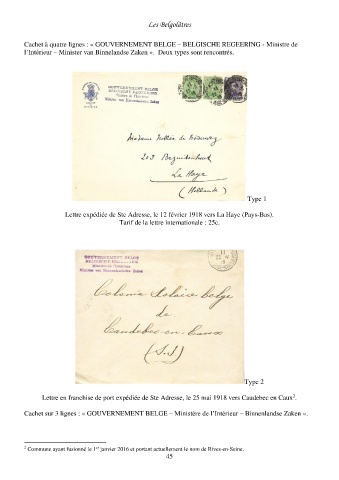 Les Belgolâtres
Cachet à quatre lignes : « GOUVERNEMENT BELGE – BELGISCHE REGEERING - Ministre de
l'Intérieur – Minister van Binnelandse Zaken ». Deux types sont rencontrés.
GOUVERNEMENT BELGE
BELGISCHE REGEERING
Ministre de l'Intérieur
Minister van Binnenlandsche Zaken
Madame
203 Bezuidenhout
La Haye
(Hollande)
Type 1
Lettre expédiée de Ste Adresse, le 12 février 1918 vers La Haye (Pays-Bas).
Tarif de la lettre internationale : 25c.
GOUVERNEMENT BELGE
BELGISCHE REGEERING
Ministre de l'Intérieur
Minister van Binnenlandsche Zaken
Colonie Scolaire belge
de
Caudebec-en-Caux
(S.I)
Type 2
Lettre en franchise de port expédiée de Ste Adresse, le 25 mai 1918 vers Caudebec en Caux2.
Cachet sur 3 lignes : « GOUVERNEMENT BELGE – Ministère de l'Intérieur – Binnenlandse Zaken ».
2 Commune ayant fusionné le 1er janvier 2016 et portant actuellement le nom de Rives-en-Seine.
45